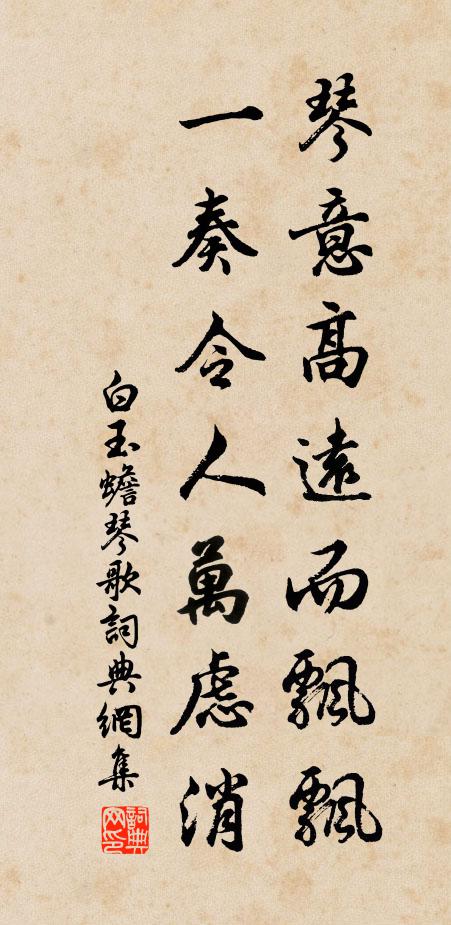 琴意高遠而飄飄
一奏令人萬慮消
白玉蟾琴歌詞典網集
詞典网印